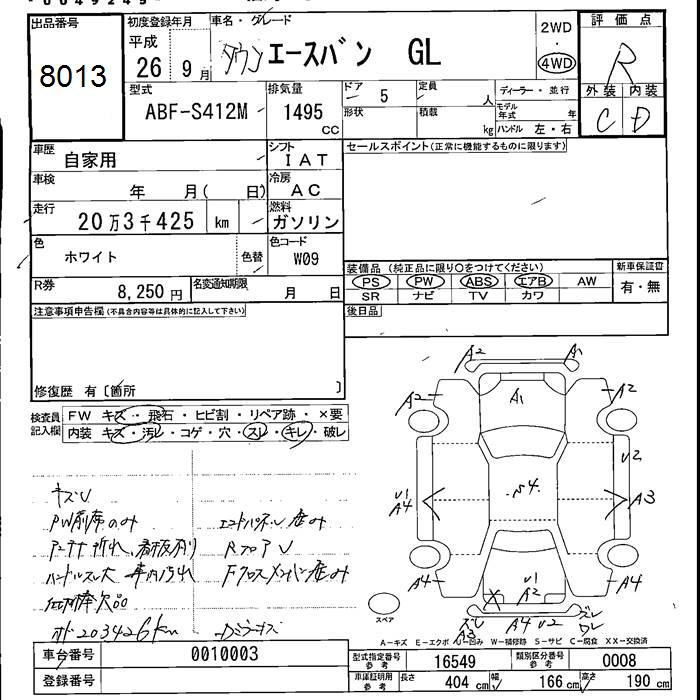 出品番号
8013
初度登録年月
平成
26 9月
車名・グレード
タウンエースバン GL
2WD
4WD
評価点
R
外装 内装
C D
型式
ABF-S412M
排気量
1495
CC
ドア
5
定員
人
形状
積載
kg
ディーラー・並行
モデル年式 年
ハンドル 左・右
車歴
自家用
シフト
IAT
セールスポイント(正常に機能するものに限ります)
車検
年 月( 日)
冷房
AC
走行
20万3千425 km
燃料
ガソリン
色
ホワイト
色替
色コード
W09
装備品 (純正品に限り○をつけてください)
PS PW ABS エアB AW
SR ナビ TV カワ
新車保証書
有・無
R券
8,250円
名変通知期限
月 日
後日品
注意事項申告欄(不具合内容等は具体的に記入して下さい)
修復歴 有〔箇所 〕
検査員記入欄
FW キズ・飛石・ヒビ割・リペア跡・×要
内装 キズ・汚レ・コゲ・穴・スレ・キレ・破レ
キズU
PW前席のみ
アンテナ折れ、看板有り
ハンドルスレ大 車内汚れ
エンドパネル歪み
RフロアU
Fクロスメンバー歪み
オド203426km
A2 A1
A2 A1 A2
U2
U1 A4 S4. A3
A4 U1 A2 A4
X
ズレ A3 A4 U2 ズレ ワレ
スペア
A-キズ E-エクボ U-凹み W-補修跡 S-サビ C-腐食 XX-交換済
車台番号
0010003
登録番号
型式指定番号 参考
16549
類別区分番号 参考
0008
車庫証明用 参考
長さ 404 cm 幅 166 cm 高さ 190 cm